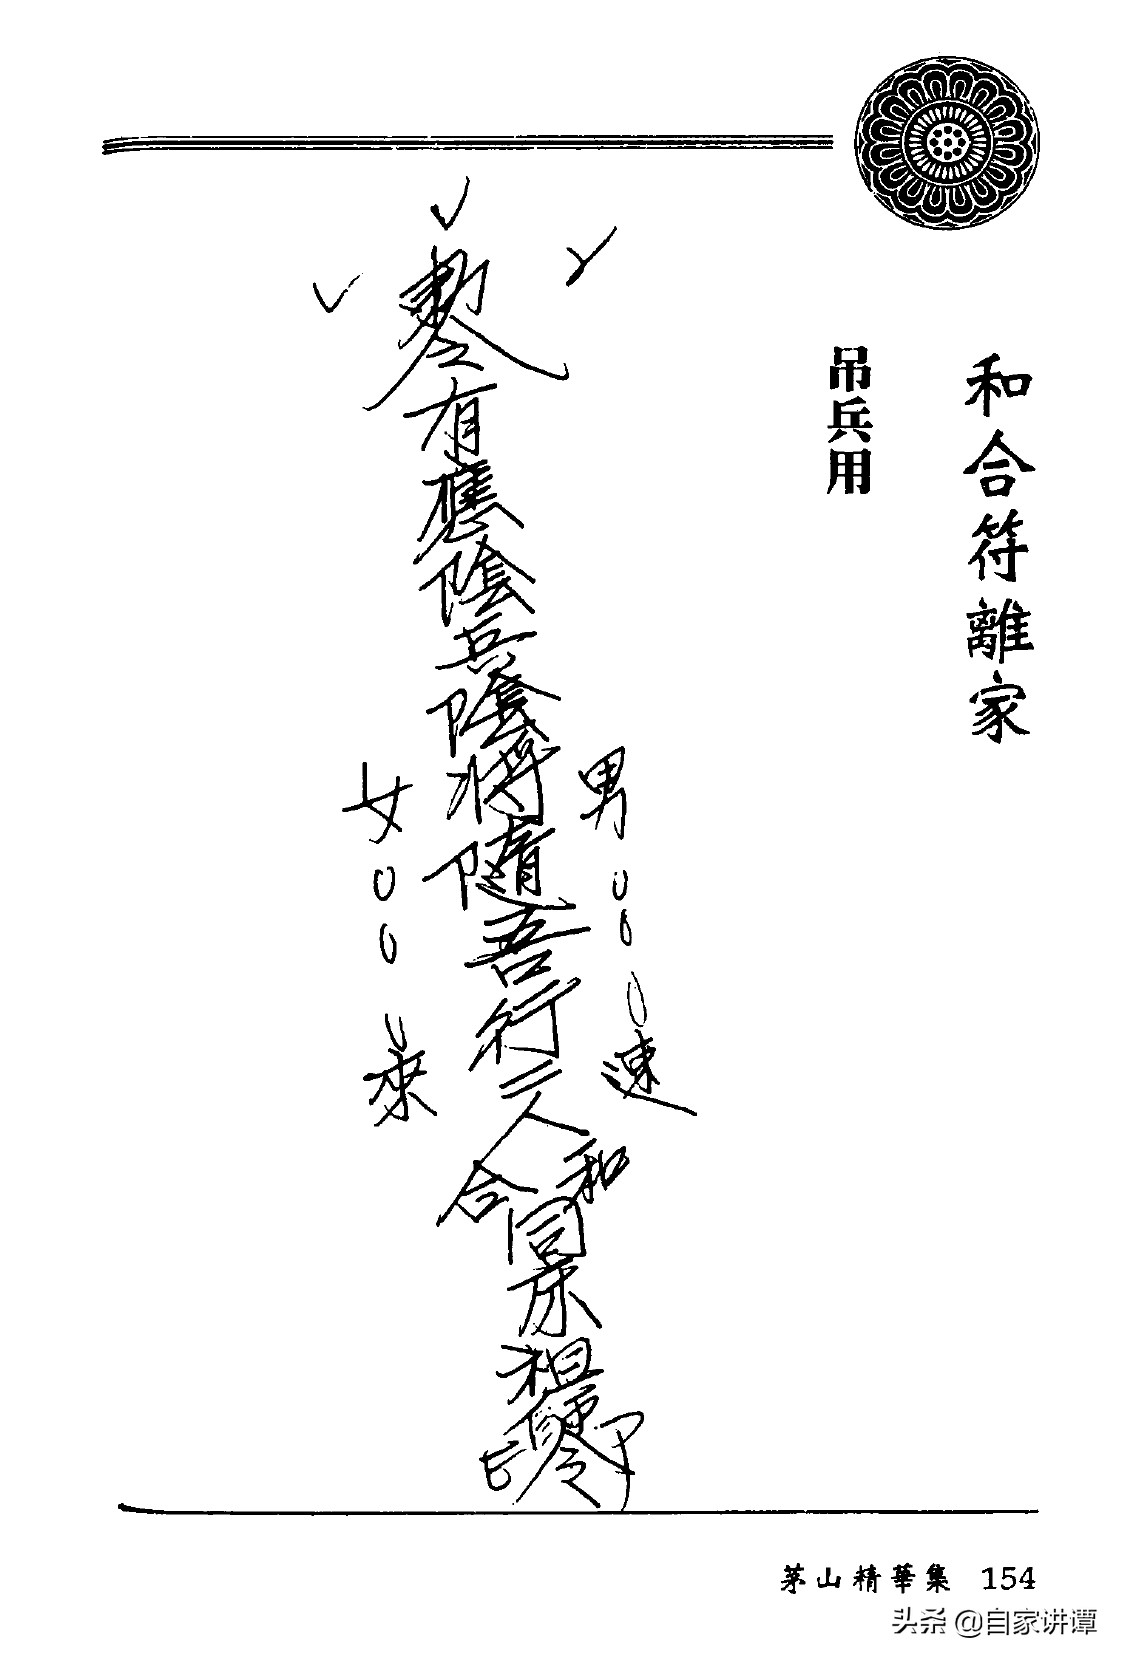 和合符離家
吊兵用
勅令有應陰兵陰將隨吾行二人和合同床祖師令印
男○○○速
女○○○來
茅山精華集 154
头条 @自家讲谭